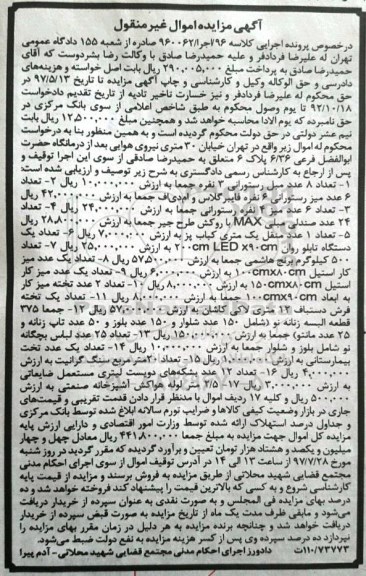 آگهی مزایده اموال غیر منقول
درخصوص پرونده اجرایی کلاسه ۹۶/اجرا/۹۶۰۰۶۲ صادره از شعبه ۱۵۵ دادگاه عمومی
تهران له علیرضا فردادفر و علیه حمیدرضا صادق با وکالت رضا بشردوست که آقای
حمیدرضا صادق به پرداخت مبلغ ۲۹۰,۰۰۵,۰۰۰ ریال بابت اصل خواسته و هزینه‌های
دادرسی و حق الوکاله وکیل و کارشناسی و چاپ آگهی مزایده تا تاریخ ۹۷/۵/۱۳ در
حق محکوم له علیرضا فردادفر و نیز خسارت تاخیر تادیه از تاریخ تقدیم دادخواست
۹۲/۱۰/۱۸ تا یوم وصول محکوم به طبق شاخص اعلامی از سوی بانک مرکزی در
حق نامبرده که یوم الادا محاسبه خواهد شد و همچنین مبلغ ۱۲,۵۰۰,۰۰۰ ریال بابت
نیم عشر دولتی در حق دولت محکوم گردیده است و به همین منظور بنا به درخواست
محکوم له اموال زیر واقع در تهران خیابان ۳۰ متری نیروی هوایی بعد از درمانگاه حضرت
ابوالفضل فرعی ۶/۳۶ پلاک ۶ متعلق به حمیدرضا صادقی از سوی این اجرا توقیف و
پس از ارجاع به کارشناس رسمی دادگستری به شرح زیر توصیف و ارزیابی شده است:
۱- تعداد ۸ عدد مبل رستورانی ۲ نفره جمعا به ارزش ۱۰,۰۰۰,۰۰۰ ریال ۲- تعداد
۶ عدد میز رستورانی ۶ نفره فایبر گلاس و ام‌دی‌اف جمعا به ارزش ۴۲,۰۰۰,۰۰۰ ریال
۳- تعداد ۶ عدد میز ۴ نفره رستورانی جمعا به ارزش ۲۴,۰۰۰,۰۰۰ ریال ۴- تعداد
۲۴ عدد صندلی مبلی MAX با روکش طرح جیر جمعا به ارزش ۲۸,۸۰۰,۰۰۰ ریال
۵- تعداد ۱ عدد منقل یک متری کباب پز به ارزش ۷,۰۰۰,۰۰۰ ریال ۶- تعداد یک
دستگاه تابلو روان ۲۰۰cm LED x۹۰cm به ارزش ۲۵,۰۰۰,۰۰۰ ریال ۷- تعداد
۵۰۰ کیلوگرم برنج هاشمی جمعا به ارزش ۵۷,۵۰۰,۰۰۰ ریال ۸- تعداد یک عدد میز
کار استیل ۱۰۰cmx۸۰cm به ارزش ۶,۰۰۰,۰۰۰ ریال ۹- تعداد یک عدد میز کار
استیل ۱۵۰cmx۸۰cm به ارزش ۸,۰۰۰,۰۰۰ ریال ۱۰- تعداد ۲ عدد تخته میز کار
به ابعاد ۱۰۰cmx۹۰cm جمعا به ارزش ۸,۰۰۰,۰۰۰ ریال ۱۱- تعداد یک تخته
فرش دستباف ۱۲ متری لاکی کاشان به ارزش ۵۷,۰۰۰,۰۰۰ ریال ۱۲- جمعا ۳۷۵
قطعه البسه زنانه نو (شامل ۱۵۰ عدد شلوار و ۱۵۰ عدد بلوز و ۵۰ عدد تاپ زنانه و
۲۵ عدد مانتو) جمعا به ارزش ۱۵۰,۰۰۰,۰۰۰ ریال ۱۳- تعداد ۲۵ عدد لباس بچگانه
نو شامل بلوز و شلوار جمعا به ارزش ۱۰,۰۰۰,۰۰۰ ریال ۱۴- تعداد یک عدد تخت
بیمارستانی به ارزش ۱,۰۰۰,۰۰۰ ریال ۱۵- تعداد ۲۰ متر مربع سنگ گرانیت به ارزش
۴,۰۰۰,۰۰۰ ریال ۱۶- تعداد ۱۲ عدد بشکه‌های دویست لیتری مستعمل ضایعاتی
به ارزش ۳,۰۰۰,۰۰۰ ریال ۱۷- ۲/۵ متر لوله هواکش آشپزخانه صنعتی به ارزش
۵۰۰,۰۰۰ ریال و کلیه ۱۷ ردیف اموال با مدنظر قرار دادن قدمت تقریبی و قیمت‌های
جاری در بازار وضعیت کیفی کالاها و ضرایب تورم سالانه ابلاغ شده توسط بانک مرکزی
و جداول درصد استهلاک ارائه شده توسط وزارت امور اقتصادی و دارایی ارزش پایه
مزایده کل اموال جهت مزایده به مبلغ جمعا ۴۴۱,۸۰۰,۰۰۰ ریال معادل چهل و چهار
میلیون و یکصد و هشتاد هزار تومان تعیین و برآورد گردیده که مقرر گردید در روز شنبه
مورخ ۹۷/۷/۲۸ از ساعت ۱۳ الی ۱۴ در آدرس توقیف اموال از سوی اجرای احکام مدنی
مجتمع قضایی شهید محلاتی از طریق مزایده به فروش برسند و مزایده از قیمت پایه
کارشناسی شروع و به کسی که بالاترین قیمت را پیشنهاد کند فروخته خواهد شد و ده
درصد بهای مزایده فی المجلس و به صورت نقدی به عنوان سپرده از خریدار دریافت
می‌شود و مابقی ظرف مدت یک ماه از تاریخ مزایده به صورت قبض سپرده از خریدار
دریافت خواهد شد و چنانچه برنده مزایده به هر دلیل در زمان مقرر بهای مزایده را
نپردازد ده درصد سپرده وی پس از کسر هزینه مزایده به نفع دولت ضبط می‌شود.
۱۱۰/۷۳۷۷۳ت دادورز اجرای احکام مدنی مجتمع قضایی شهید محلاتی- آدم پیرا